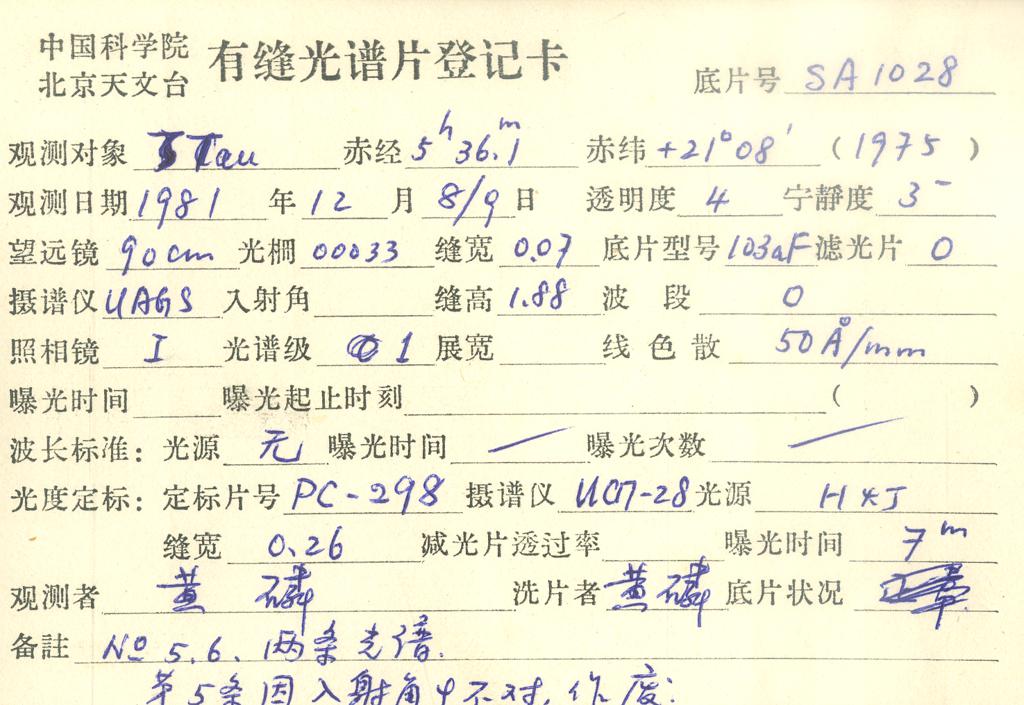 中国科学院
北京天文台
有缝光谱片登记卡 底片号 SA1028
观测对象 Tau 赤经 5ʰ36.ᵐ1 赤纬 +21°08′ (1975)
观测日期 1981 年 12 月 8/9 日 透明度 4 宁静度 3⁻
望远镜 90cm 光栅 00033 缝宽 0.07 底片型号 103aF 滤光片 0
摄谱仪 UAGS 入射角 缝高 1.88 波段 0
照相镜 I 光谱级 1 展宽 线色散 50Å/mm
曝光时间 曝光起止时刻 ( )
波长标准: 光源 无 曝光时间 — 曝光次数 —
光度定标: 定标片号 PC-298 摄谱仪 ИСП-28 光源
缝宽 0.26 减光片透过率 曝光时间 7ᵐ
观测者 黄磷 洗片者 黄磷 底片状况
备註 № 5.6. 两条光谱.
第5条因入射角 不对, 作废.